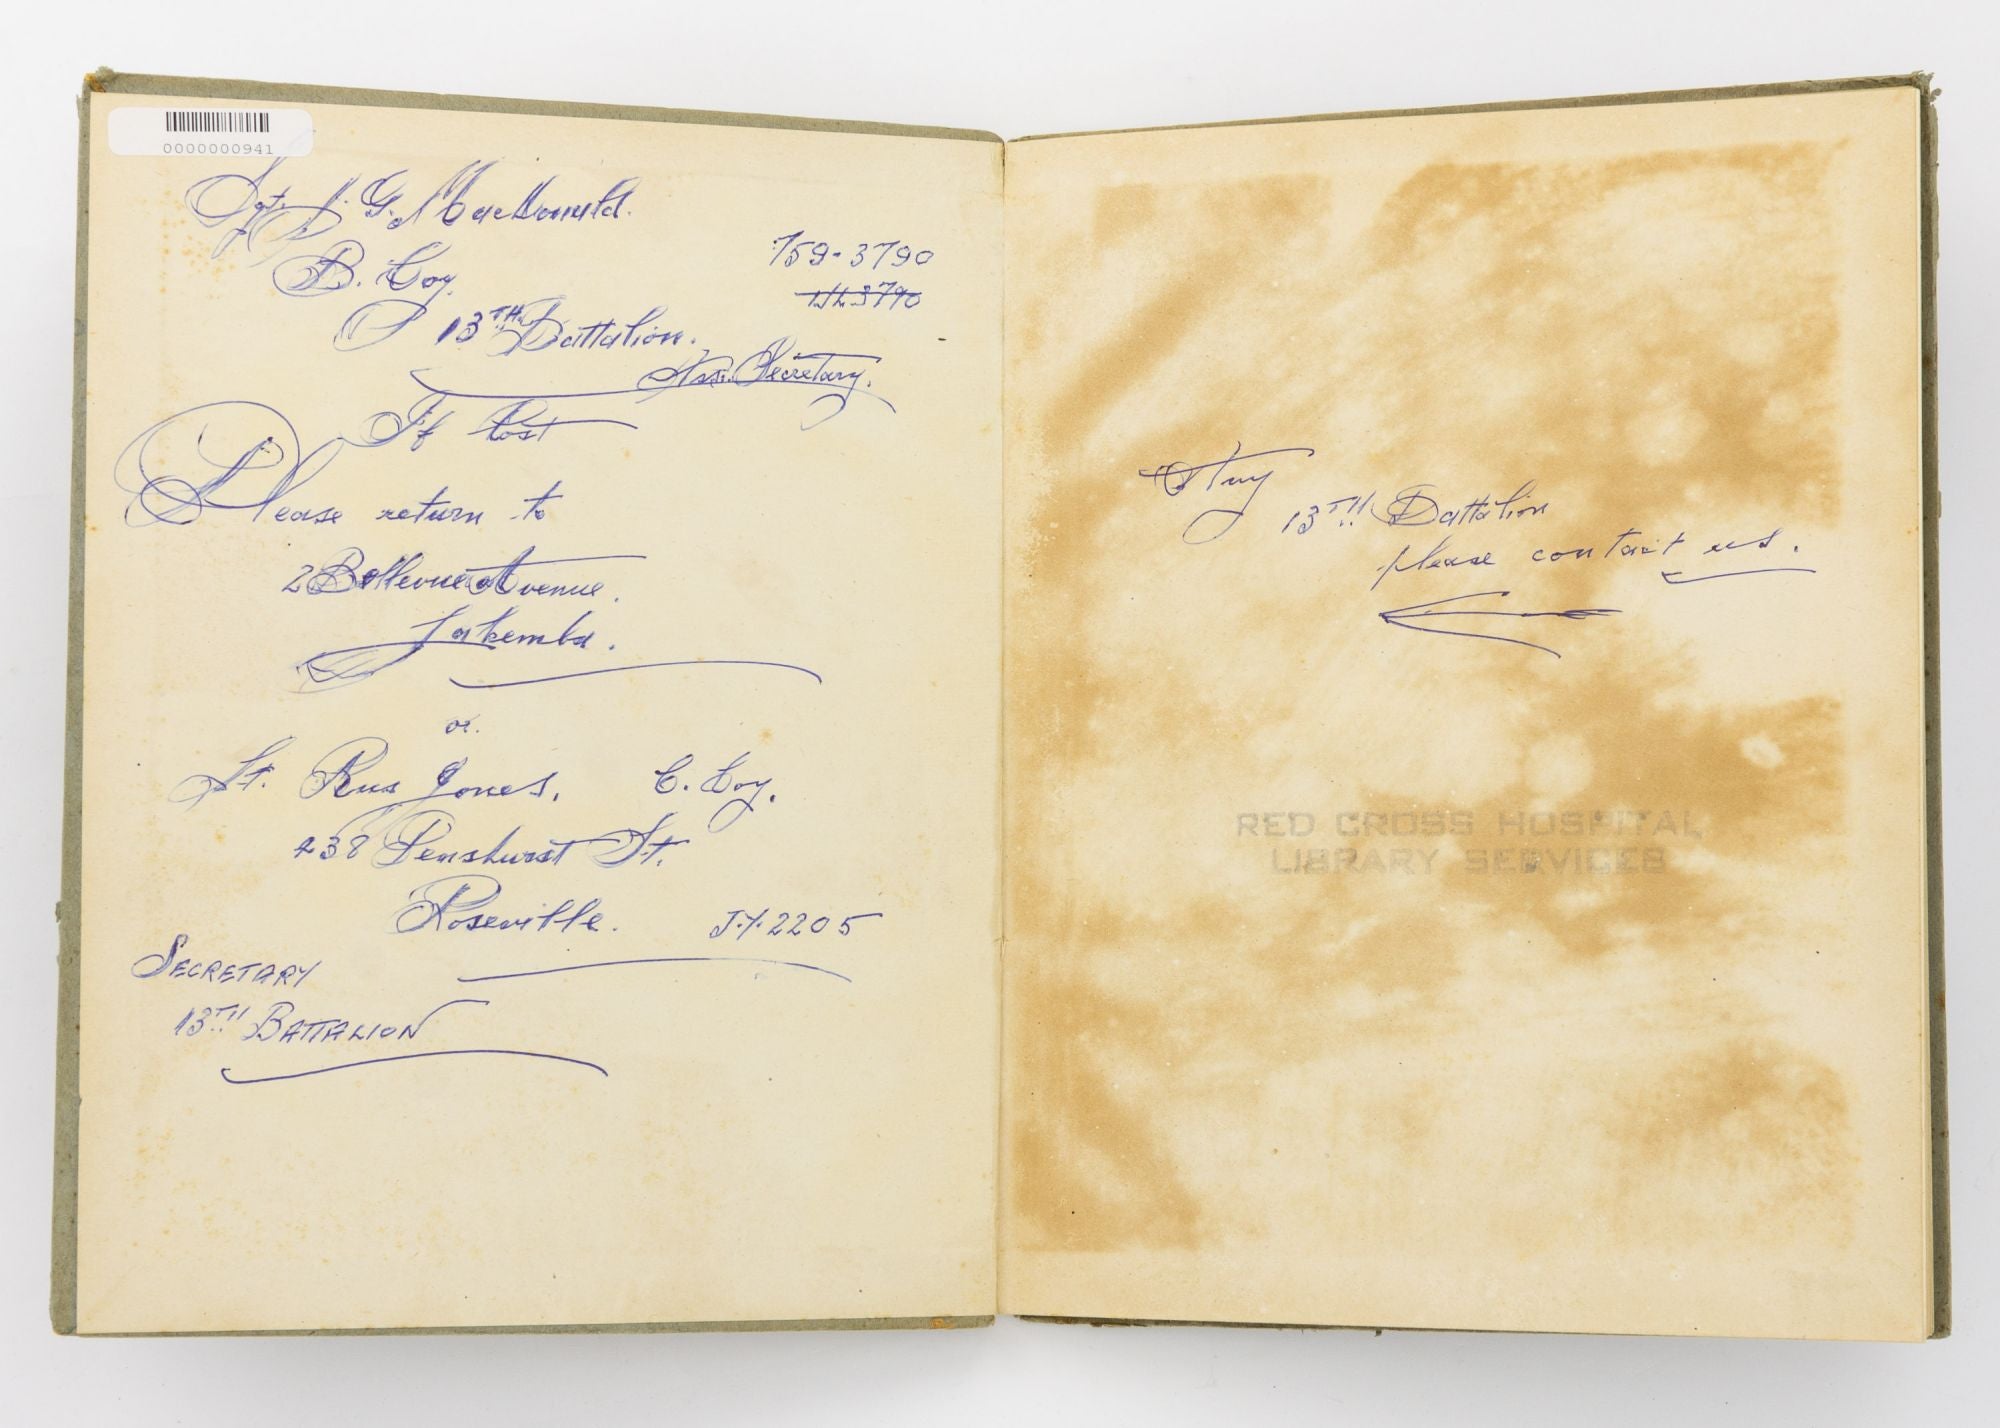 0000000941
Sgt. N. G. MacDonald.
B. Coy.
759-3790
13TH Battalion.
Ass. Secretary.
If Lost
Please return to
2 Bellevue Avenue.
Lakemba.
or.
Lt. Rus Jones. C. Coy.
438 Penshurst St.
Roseville. J.Y.2205
SECRETARY
13TH BATTALION
Any
13TH Battalion
please contact us.
RED CROSS HOSPITAL
LIBRARY SERVICES